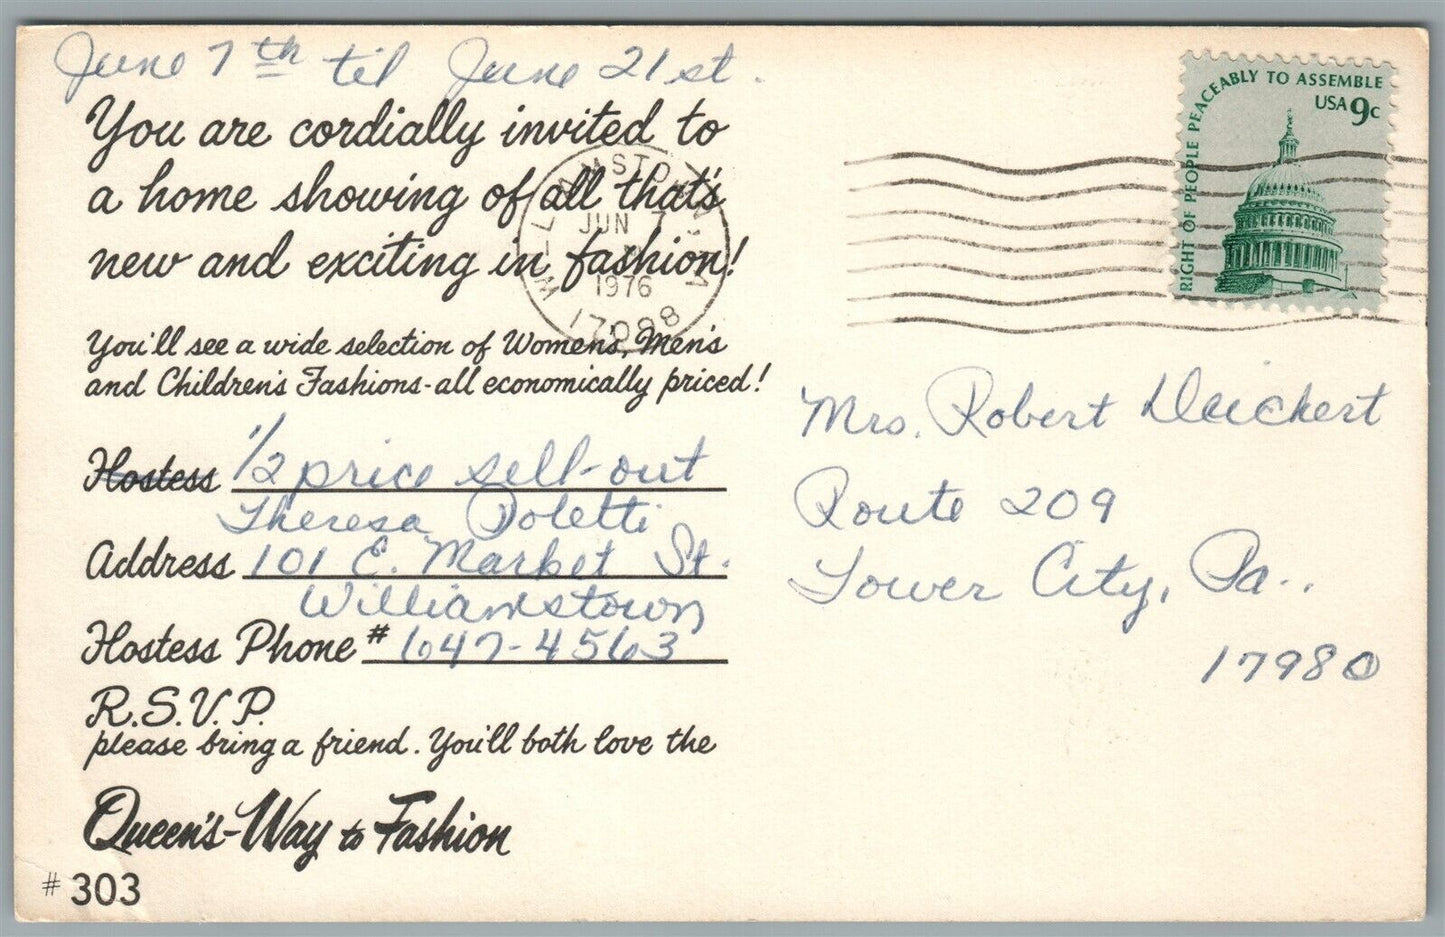 June 7th til June 21st.
You are cordially invited to
a home showing of all that's
new and exciting in fashion!
You'll see a wide selection of Women's, Men's
and Children's Fashions-all economically priced!
Hostess 1/2 price sell-out
Theresa Poletti
Address 101 E. Market St.
Williamstown
Hostess Phone # 647-4563
R.S.V.P.
please bring a friend. You'll both love the
Queen's-Way to Fashion
# 303
WILLIAMSTOWN
JUN 7
1976
17098
RIGHT OF PEOPLE PEACEABLY TO ASSEMBLE
USA 9c
Mrs. Robert Deichert
Route 209
Tower City, Pa..
17980